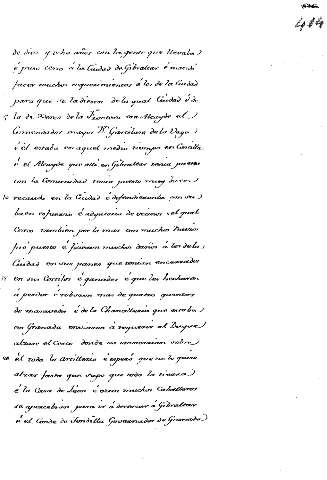 de diez y ocho años con la gente que llevaba
é puso cerco á la Ciudad de Gibraltar é mandó
facer muchos requerimientos á los de la Ciudad
para que se la diesen de la qual Ciudad é de
5 la de Xerez de la Frontera era Alcayde el
Comendador mayor Dn Garcilaso de la Vega
é él estaba en aquel medio tiempo en Castilla
é el Alcayde que allí en Gibraltar tenia puesto
con la Comunidad tenia puesto muy buen
10 recaudo en la Ciudad é defendieronla
bien é de vecinos el qual
Cerco tambien por la mar con muchos Navios
fué puesto é ficieron muchos daños á los de la
Ciudad en sus panes que tenian encerrados
15 en sus Cortijos é ganados é que les hicieron
é perder é robaron mas de quatro quentos
de maravedis é de la Chancilleria que estaba
en Granada enviaron á requerir al Duque
alzase el Cerco donde
20 él toda la Artilleria é esperó que no lo queria
alzar fasta que supo que toda la tierra
é la Casa de Leon é otros muchos Caballeros
se aparejaban para ir á descercar á Gibraltar
é el Conde de Tendilla Governador de Granada